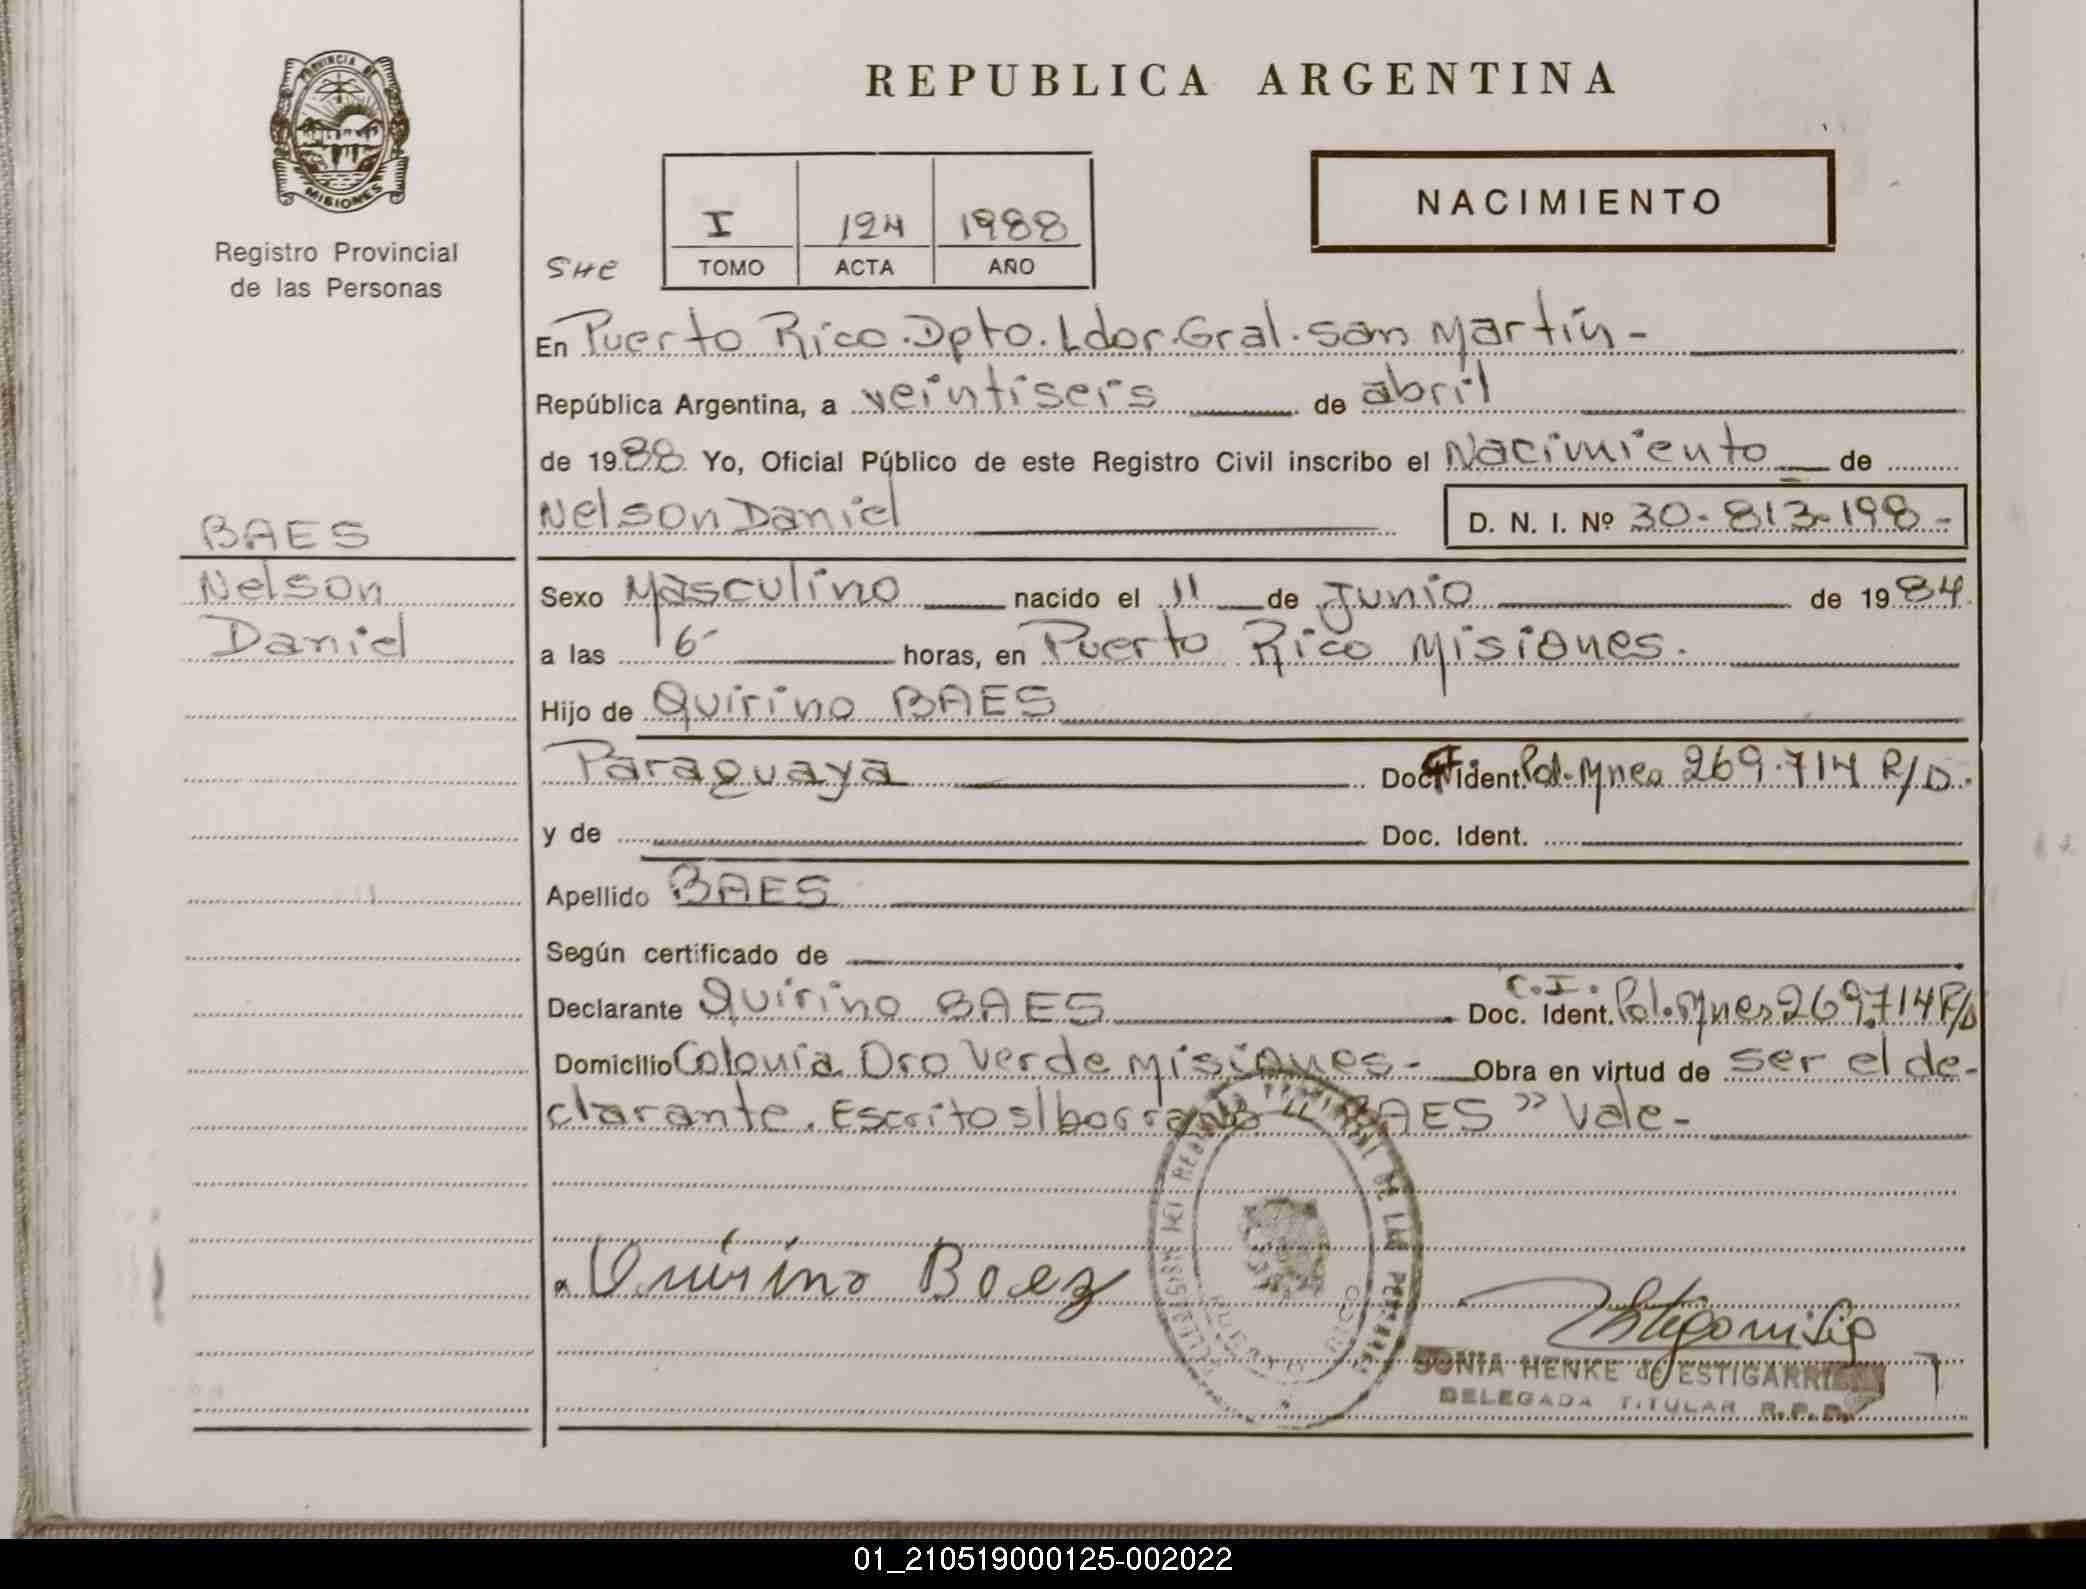 PROVINCIA DE
MISIONES
Registro Provincial
de las Personas
REPUBLICA ARGENTINA
NACIMIENTO
I 124 1988
TOMO ACTA AÑO
SHE
En Puerto Rico. Dpto. Ldor. Gral. San Martín -
República Argentina, a veintiseis de abril
de 1988 Yo, Oficial Público de este Registro Civil inscribo el Nacimiento de
Nelson Daniel D. N. I. Nº 30.813.198 -
BAES
Nelson
Daniel
Sexo Masculino nacido el 11 de Junio de 1984
a las 16 horas, en Puerto Rico Misiones.
Hijo de Quirino BAES
Paraguaya Doc. Ident. Pol. Mnes 269.714 R/D.
y de Doc. Ident.
Apellido BAES
Según certificado de
Declarante Quirino BAES C.I. Doc. Ident. Pol. Mnes 269.714 R/D
Domicilio Colonia Oro Verde Misiones - Obra en virtud de ser el de-
clarante. Escrito s/borrado "BAES" Vale -
Quirino Baez
DE LAS PERSONAS
PUERTO RICO
SONIA HENKE de ESTIGARRIBIA
DELEGADA TITULAR R.P.P.
01_210519000125-002022